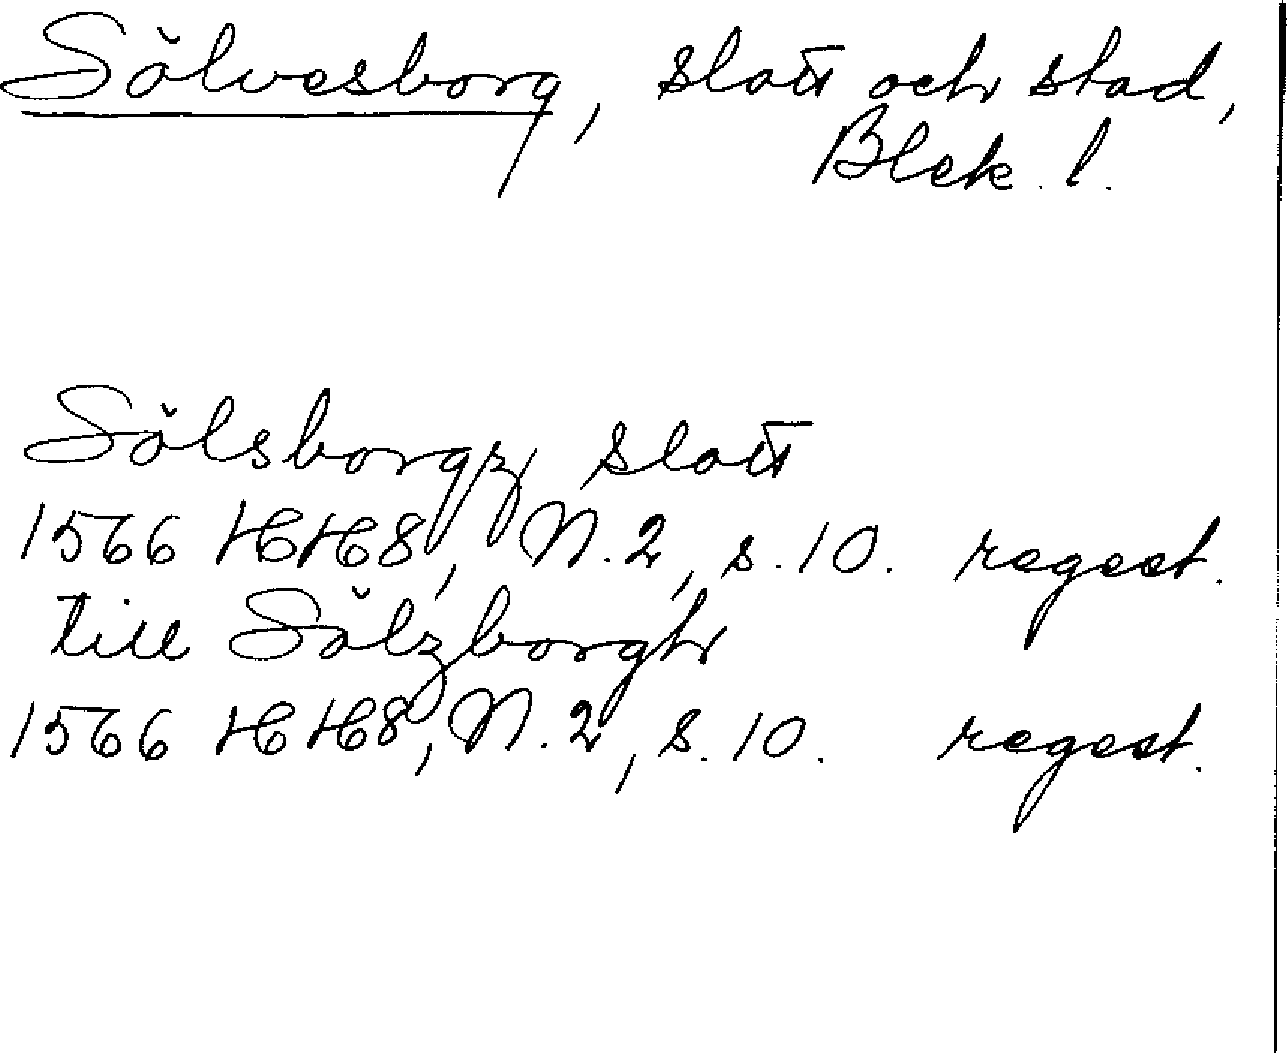 Sölvesborg, slott och stad,
Blek. l.
Sölsborgz slott
1566 HH8, N. 2, s. 10. regest.
till Sölzborgh
1566 HH8, N. 2, s. 10. regest.